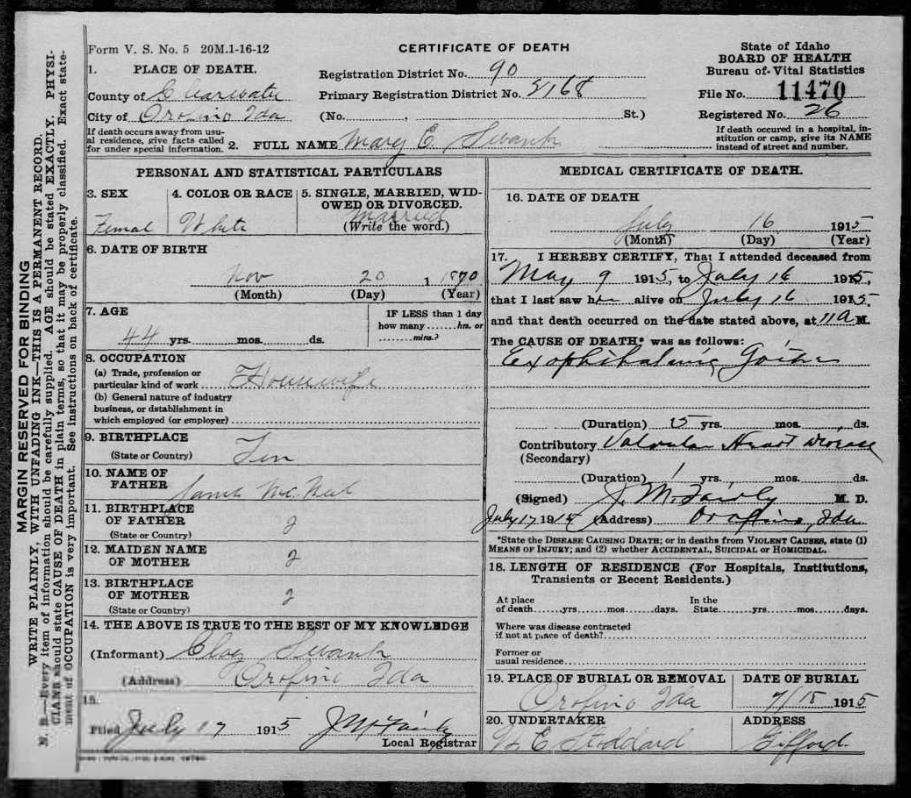 Form V. S. No. 5 20M.1-16-12
CERTIFICATE OF DEATH
State of Idaho
BOARD OF HEALTH
Bureau of Vital Statistics
File No. 11470
Registered No. 26
If death occured in a hospital, in-
stitution or camp, give its NAME
instead of street and number.
1. PLACE OF DEATH.
County of Clearwater
City of Orofino Ida
If death occurs away from usu-
al residence, give facts called
for under special information.
Registration District No. 90
Primary Registration District No. 5168
(No. , St.)
2. FULL NAME Mary E. Swank
PERSONAL AND STATISTICAL PARTICULARS
3. SEX
Femal
4. COLOR OR RACE
White
5. SINGLE, MARRIED, WID-
OWED OR DIVORCED.
Married
(Write the word.)
6. DATE OF BIRTH
Nov 20 1 1870
(Month) (Day) (Year)
7. AGE
44 yrs. mos. ds.
IF LESS than 1 day
how many hrs. or
mins.?
8. OCCUPATION
(a) Trade, profession or
particular kind of work Housewife
(b) General nature of industry
business, or establishment in
which employed (or employer)
9. BIRTHPLACE
(State or Country) Ten
10. NAME OF
FATHER
11. BIRTHPLACE
OF FATHER ?
(State or Country)
12. MAIDEN NAME
OF MOTHER ?
13. BIRTHPLACE
OF MOTHER ?
(State or Country)
14. THE ABOVE IS TRUE TO THE BEST OF MY KNOWLEDGE
(Informant) Swank
(Address) Orofino Ida
15.
Filed July 17 1915 J M Fairly
Local Registrar
MEDICAL CERTIFICATE OF DEATH.
16. DATE OF DEATH
July 16 1915
(Month) (Day) (Year)
17. I HEREBY CERTIFY, That I attended deceased from
May 9 1915, to July 16 1915,
that I last saw her alive on July 16 1915
and that death occurred on the date stated above, at 11 a M.
The CAUSE OF DEATH* was as follows:
Exophthalmic Goitre
(Duration) 15 yrs. mos. ds.
Contributory Valvular Heart Disease
(Secondary)
(Duration) yrs. mos. ds.
(Signed) J. M. Fairly M. D.
July 17 1914 (Address) Orofino, Ida
*State the DISEASE CAUSING DEATH; or in deaths from VIOLENT CAUSES, state (1)
MEANS OF INJURY; and (2) whether ACCIDENTAL, SUICIDAL or HOMICIDAL.
18. LENGTH OF RESIDENCE (For Hospitals, Institutions,
Transients or Recent Residents.)
At place
of death yrs. mos. days.
In the
State yrs. mos. days.
Where was disease contracted
if not at place of death?
Former or
usual residence
19. PLACE OF BURIAL OR REMOVAL
Orofino Ida
DATE OF BURIAL
7/18 1915
20. UNDERTAKER
Stoddard
ADDRESS
Gifford
MARGIN RESERVED FOR BINDING
WRITE PLAINLY, WITH UNFADING INK—THIS IS A PERMANENT RECORD.
N. B.—Every item of information should be carefully supplied. AGE should be stated EXACTLY. PHYSI-
CIANS should state CAUSE OF DEATH in plain terms, so that it may be properly classified. Exact state-
ment of OCCUPATION is very important. See instructions on back of certificate.